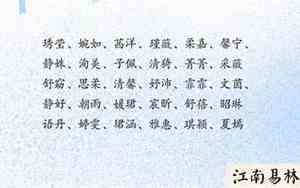 琇莹、婉如、芮洋、瑾薇、柔嘉、馨宁、
静姝、洵美、子佩、清绮、菁菁、采薇
舒窈、思柔、清馨、妤沛、霏霏、文茵、
静好、朝雨、媛珺、宸昕、舒蓓、昭琳
语丹、婷雯、珺涵、雅惠、琪颖、夏嫣
江南易林